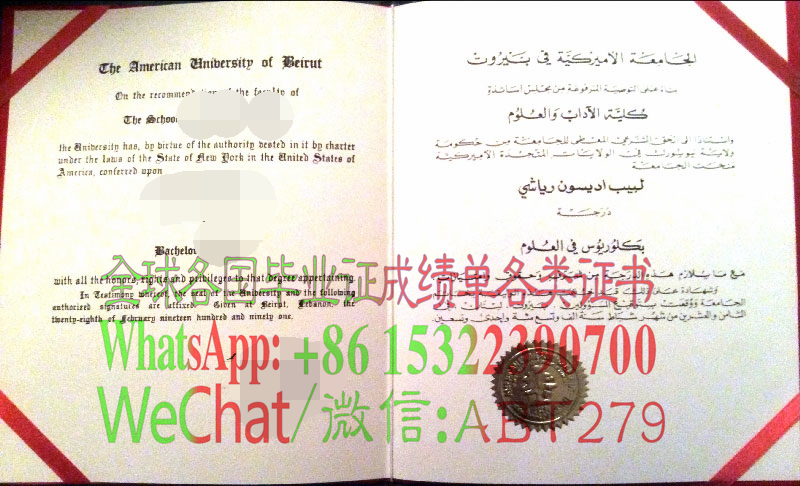 The American University of Beirut
On the recommendation of the faculty of
The School
the University has, by virtue of the authority vested in it by charter
under the laws of the State of New York in the United States of
America, conferred upon
Bachelor
with all the honors, rights and privileges to that degree appertaining.
In Testimony whereof, the seal of the University and the following
authorized signatures are hereto affixed. Given at Beirut, Lebanon, the
twenty-eighth of February nineteen hundred and ninety one.
الجامعة الأميركية في بيروت
بناء على التوصية المرفوعة من مجلس أساتذة
كلية الآداب والعلوم
واستنادا الى الحق الشرعي المعطى للجامعة من حكومة
ولاية نيويورك في الولايات المتحدة الأميركية
منحت الجامعة
لبيب اديسون رياشي
درجة
بكلوريوس في العلوم
مع ما يلازم هذه الدرجة من
وشهادة على
الجامعة ووقعت
الثامن والعشرين من شهر شباط سنة الف وتسع مئة واحدى وتسعين
全球各国毕业证成绩单各类证书
WhatsApp: +86 15322390700
WeChat/微信:ABT279